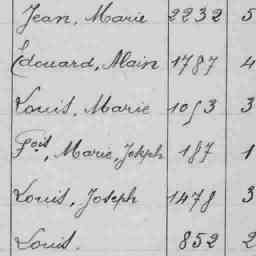 Jean, Marie 2232 5
Édouard, Alain 1787 4
Louis, Marie 1053 3
Fois, Marie, Joseph 187 1
Louis, Joseph 1478 3
Louis. 852 2